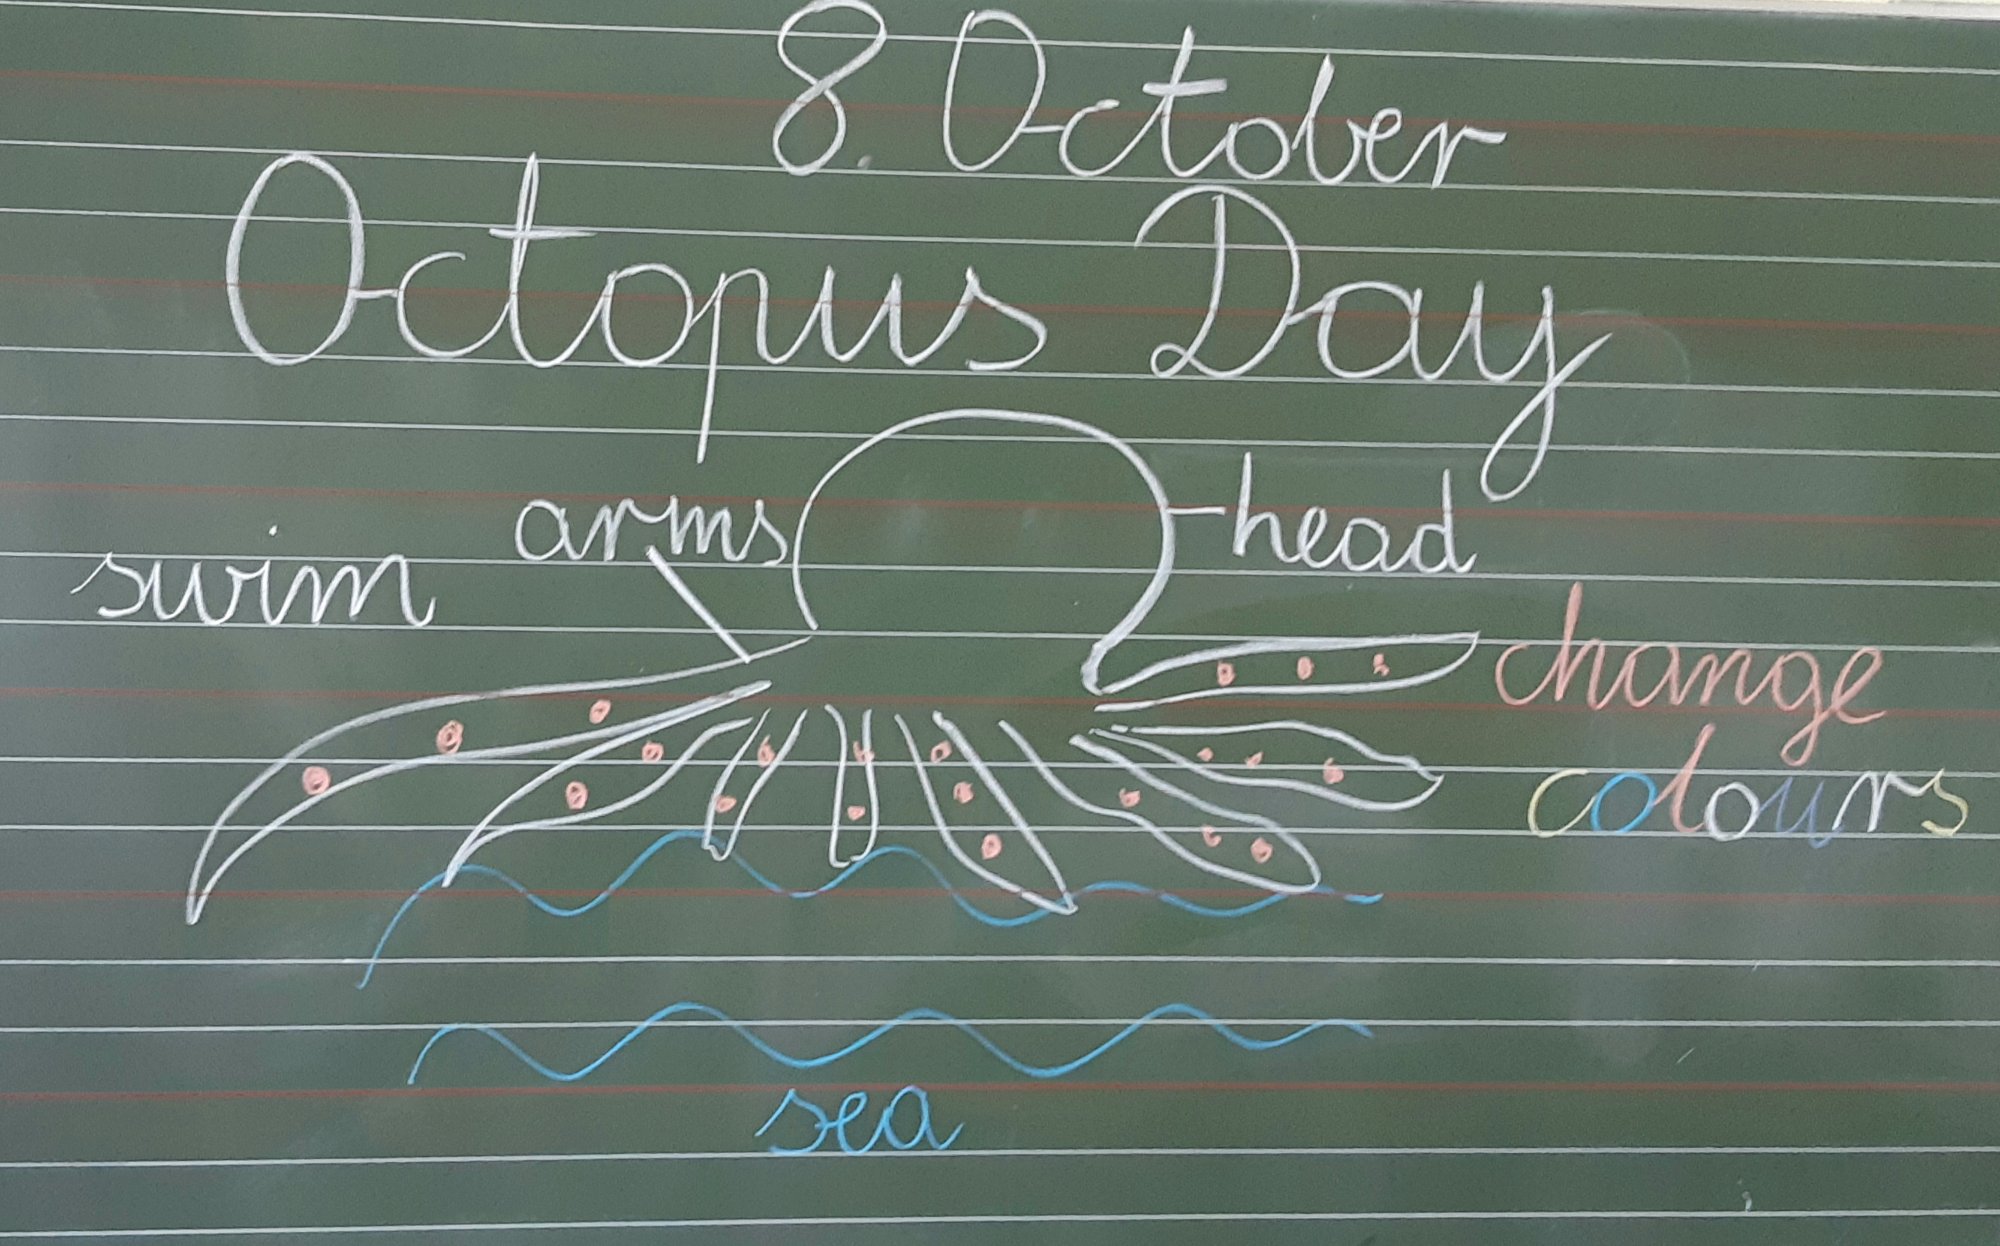 8. October
Octopus Day
arms
head
swim
change
colours
sea